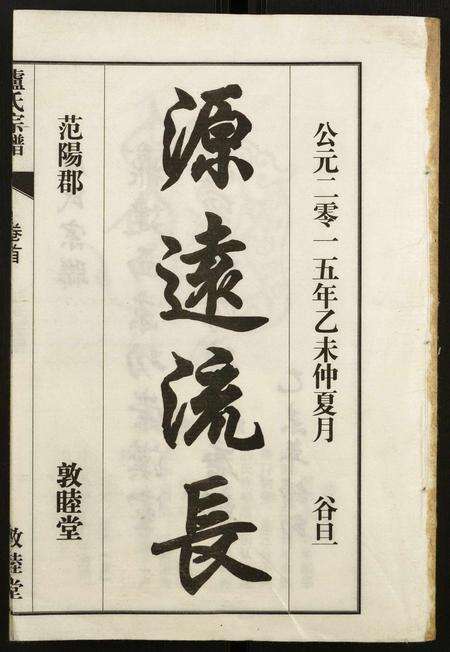 公元二零一五年乙未仲夏月 谷旦
源遠流長
范陽郡 敦睦堂
盧氏宗譜 卷首 敦睦堂